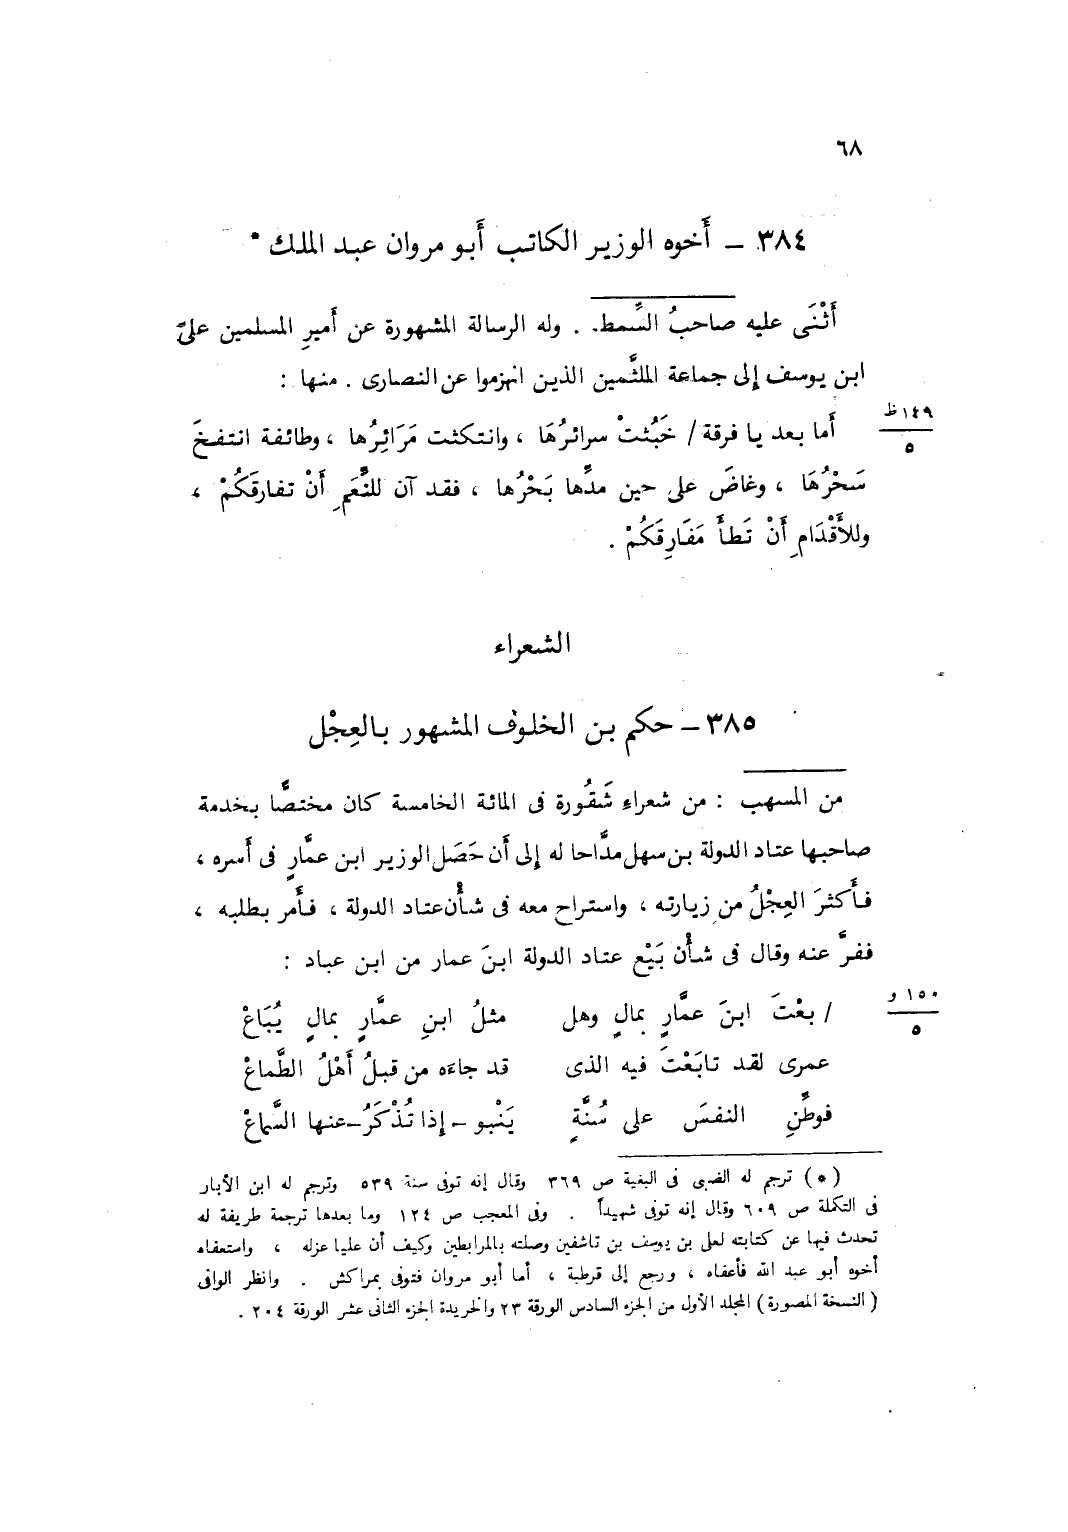 ٦٨
٣٨٤ – أَخوه الوزير الكاتب أَبو مروان عبد الملك *
أَثْنَى عليه صاحبُ السِّمط . وله الرسالة المشهورة عن أَميرِ المسلمين علىّ
ابن يوسف إِلى جماعة الملثَّمين الذين انهزموا عن النصارى . منها :
أَما بعد يا فرقة / خَبُثتْ سرائرُهَا ، وانتكثت مَرَائِرُها ، وطائفة انتفخَ
١٤٩ ظ
٥
سَحْرُهَا ، وغاضَ على حين مدِّها بَحْرُها ، فقد آن للنِّعَمِ أَنْ تفارقَكُمْ ،
وللأَقْدَامِ أَنْ تَطأَ مَفَارِقَكُمْ .
الشعراء
٣٨٥ – حكم بن الخلوف المشهور بالعِجْل
من المسهب : من شعراءِ شَقُورة فى المائة الخامسة كان مختصًّا بخدمة
صاحبها عتاد الدولة بن سهل مدَّاحا له إِلى أَن حَصَل الوزير ابن عمَّارٍ فى أَسره ،
فأَكثرَ العِجْلُ من زيارته ، واستراح معه فى شأْن عتاد الدولة ، فأَمر بطلبه ،
ففرَّ عنه وقال فى شأْن بَيْعِ عتاد الدولة ابنَ عمار من ابن عباد :
١٥٠ و
٥
/ بعْتَ ابنَ عمَّارٍ بمالٍ وهل مثلُ ابنِ عمَّارٍ بمالٍ يُبَاعْ
عمرى لقد تابَعْتَ فيه الذى قد جاءَه من قبلُ أَهْلُ الطَّماعْ
فوطِّنِ النفسَ على سُنَّةٍ يَنْبو – إِذا تُذْكَرُ – عنها السَّماعْ
( * ) ترجم له الضبى فى البغية ص ٣٦٩ وقال إنه توفى سنة ٥٣٩ وترجم له ابن الأبار
فى التكملة ص ٦٠٩ وقال إنه توفى شهيداً . وفى المعجب ص ١٢٤ وما بعدها ترجمة طريفة له
تحدث فيها عن كتابته لعلى بن يوسف بن تاشفين وصلته بالمرابطين وكيف أن عليا عزله ، واستعفاه
أخوه أبو عبد الله فأعفاه ، ورجع إلى قرطبة ، أما أبو مروان فتوفى بمراكش . وانظر الوافى
( النسخة المصورة ) المجلد الأول من الجزء السادس الورقة ٢٣ والخريدة الجزء الثانى عشر الورقة ٢٠٤ .